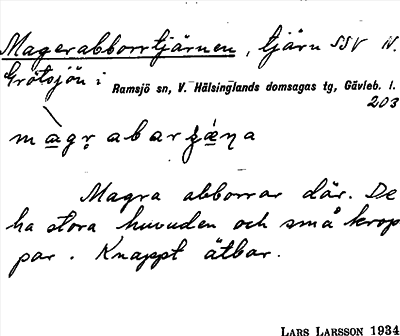 Magerabborrtjärnen, tjärn SSV N.
Grötsjön i Ramsjö sn, V. Hälsinglands domsagas tg, Gävleb. l.
203
Magra abborrar där. De
ha stora huvuden och små krop
par. Knappt ätbar.
LARS LARSSON 1934